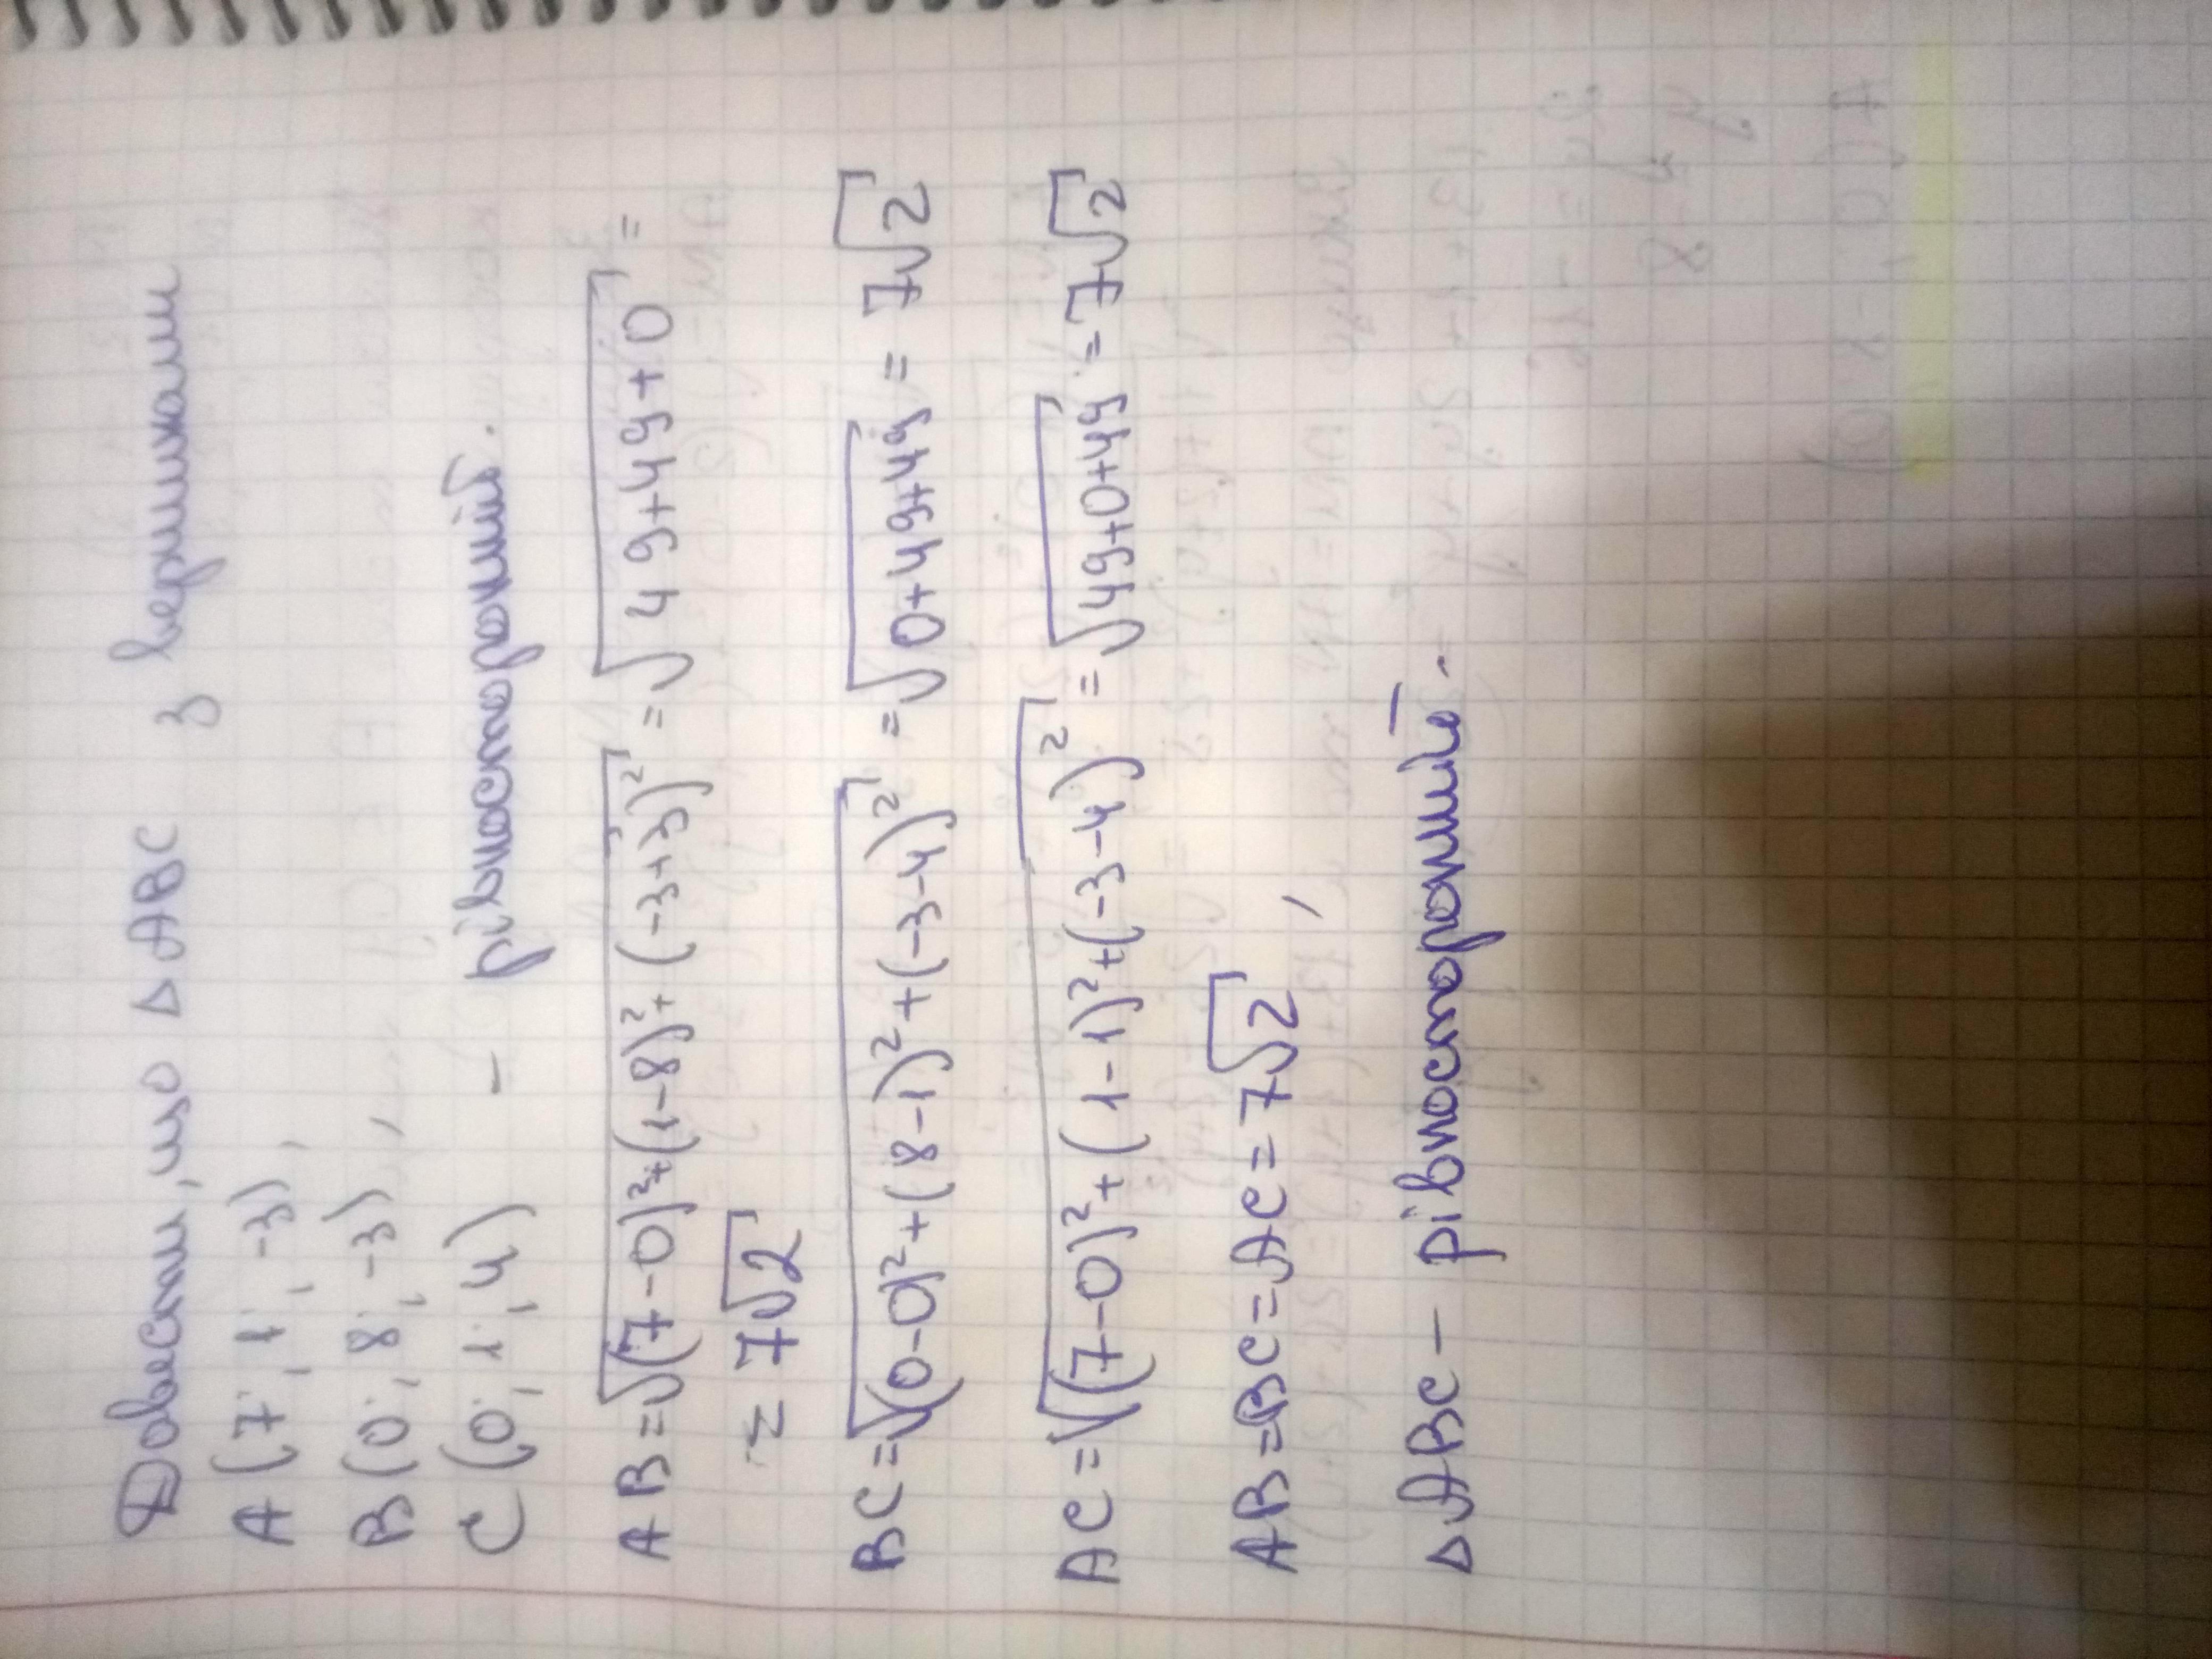 Довести, що △ABC з вершинами
A (7; 1; -3),
B (0; 8; -3),
C (0; 1; 4) - рівносторонній.
AB = √(7-0)²+(1-8)²+(-3+3)² = √49+49+0 =
= 7√2
BC = √(0-0)²+(8-1)²+(-3-4)² = √0+49+49 = 7√2
AC = √(7-0)²+(1-1)²+(-3-4)² = √49+0+49 = 7√2
AB=BC=AC=7√2,
△ABC - рівносторонній.